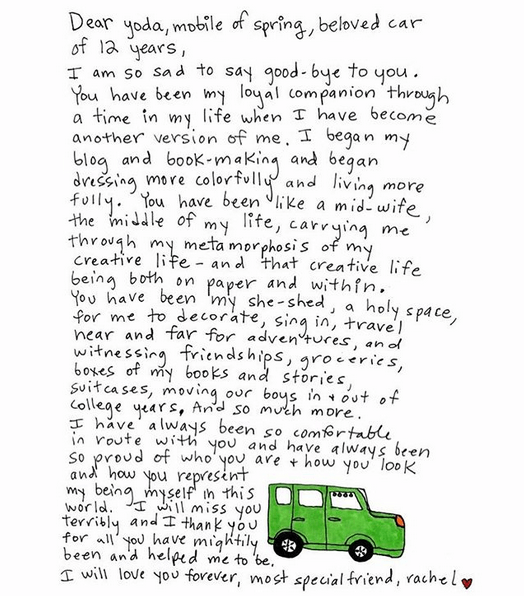 Dear yoda, mobile of spring, beloved car
of 12 years,
I am so sad to say good-bye to you.
You have been my loyal companion through
a time in my life when I have become
another version of me. I began my
blog and book-making and began
dressing more colorfully and living more
fully. You have been like a mid-wife,
the middle of my life, carrying me
through my metamorphosis of my
creative life - and that creative life
being both on paper and within.
You have been my she-shed, a holy space,
for me to decorate, sing in, travel
near and far for adventures, and
witnessing friendships, groceries,
boxes of my books and stories,
suitcases, moving our boys in + out of
college years. And so much more.
I have always been so comfortable
in route with you and have always been
so proud of who you are + how you look
and how you represent
my being myself in this
world. I will miss you
terribly and I thank you
for all you have mightily
been and helped me to be.
I will love you forever, most special friend, rachel ♥